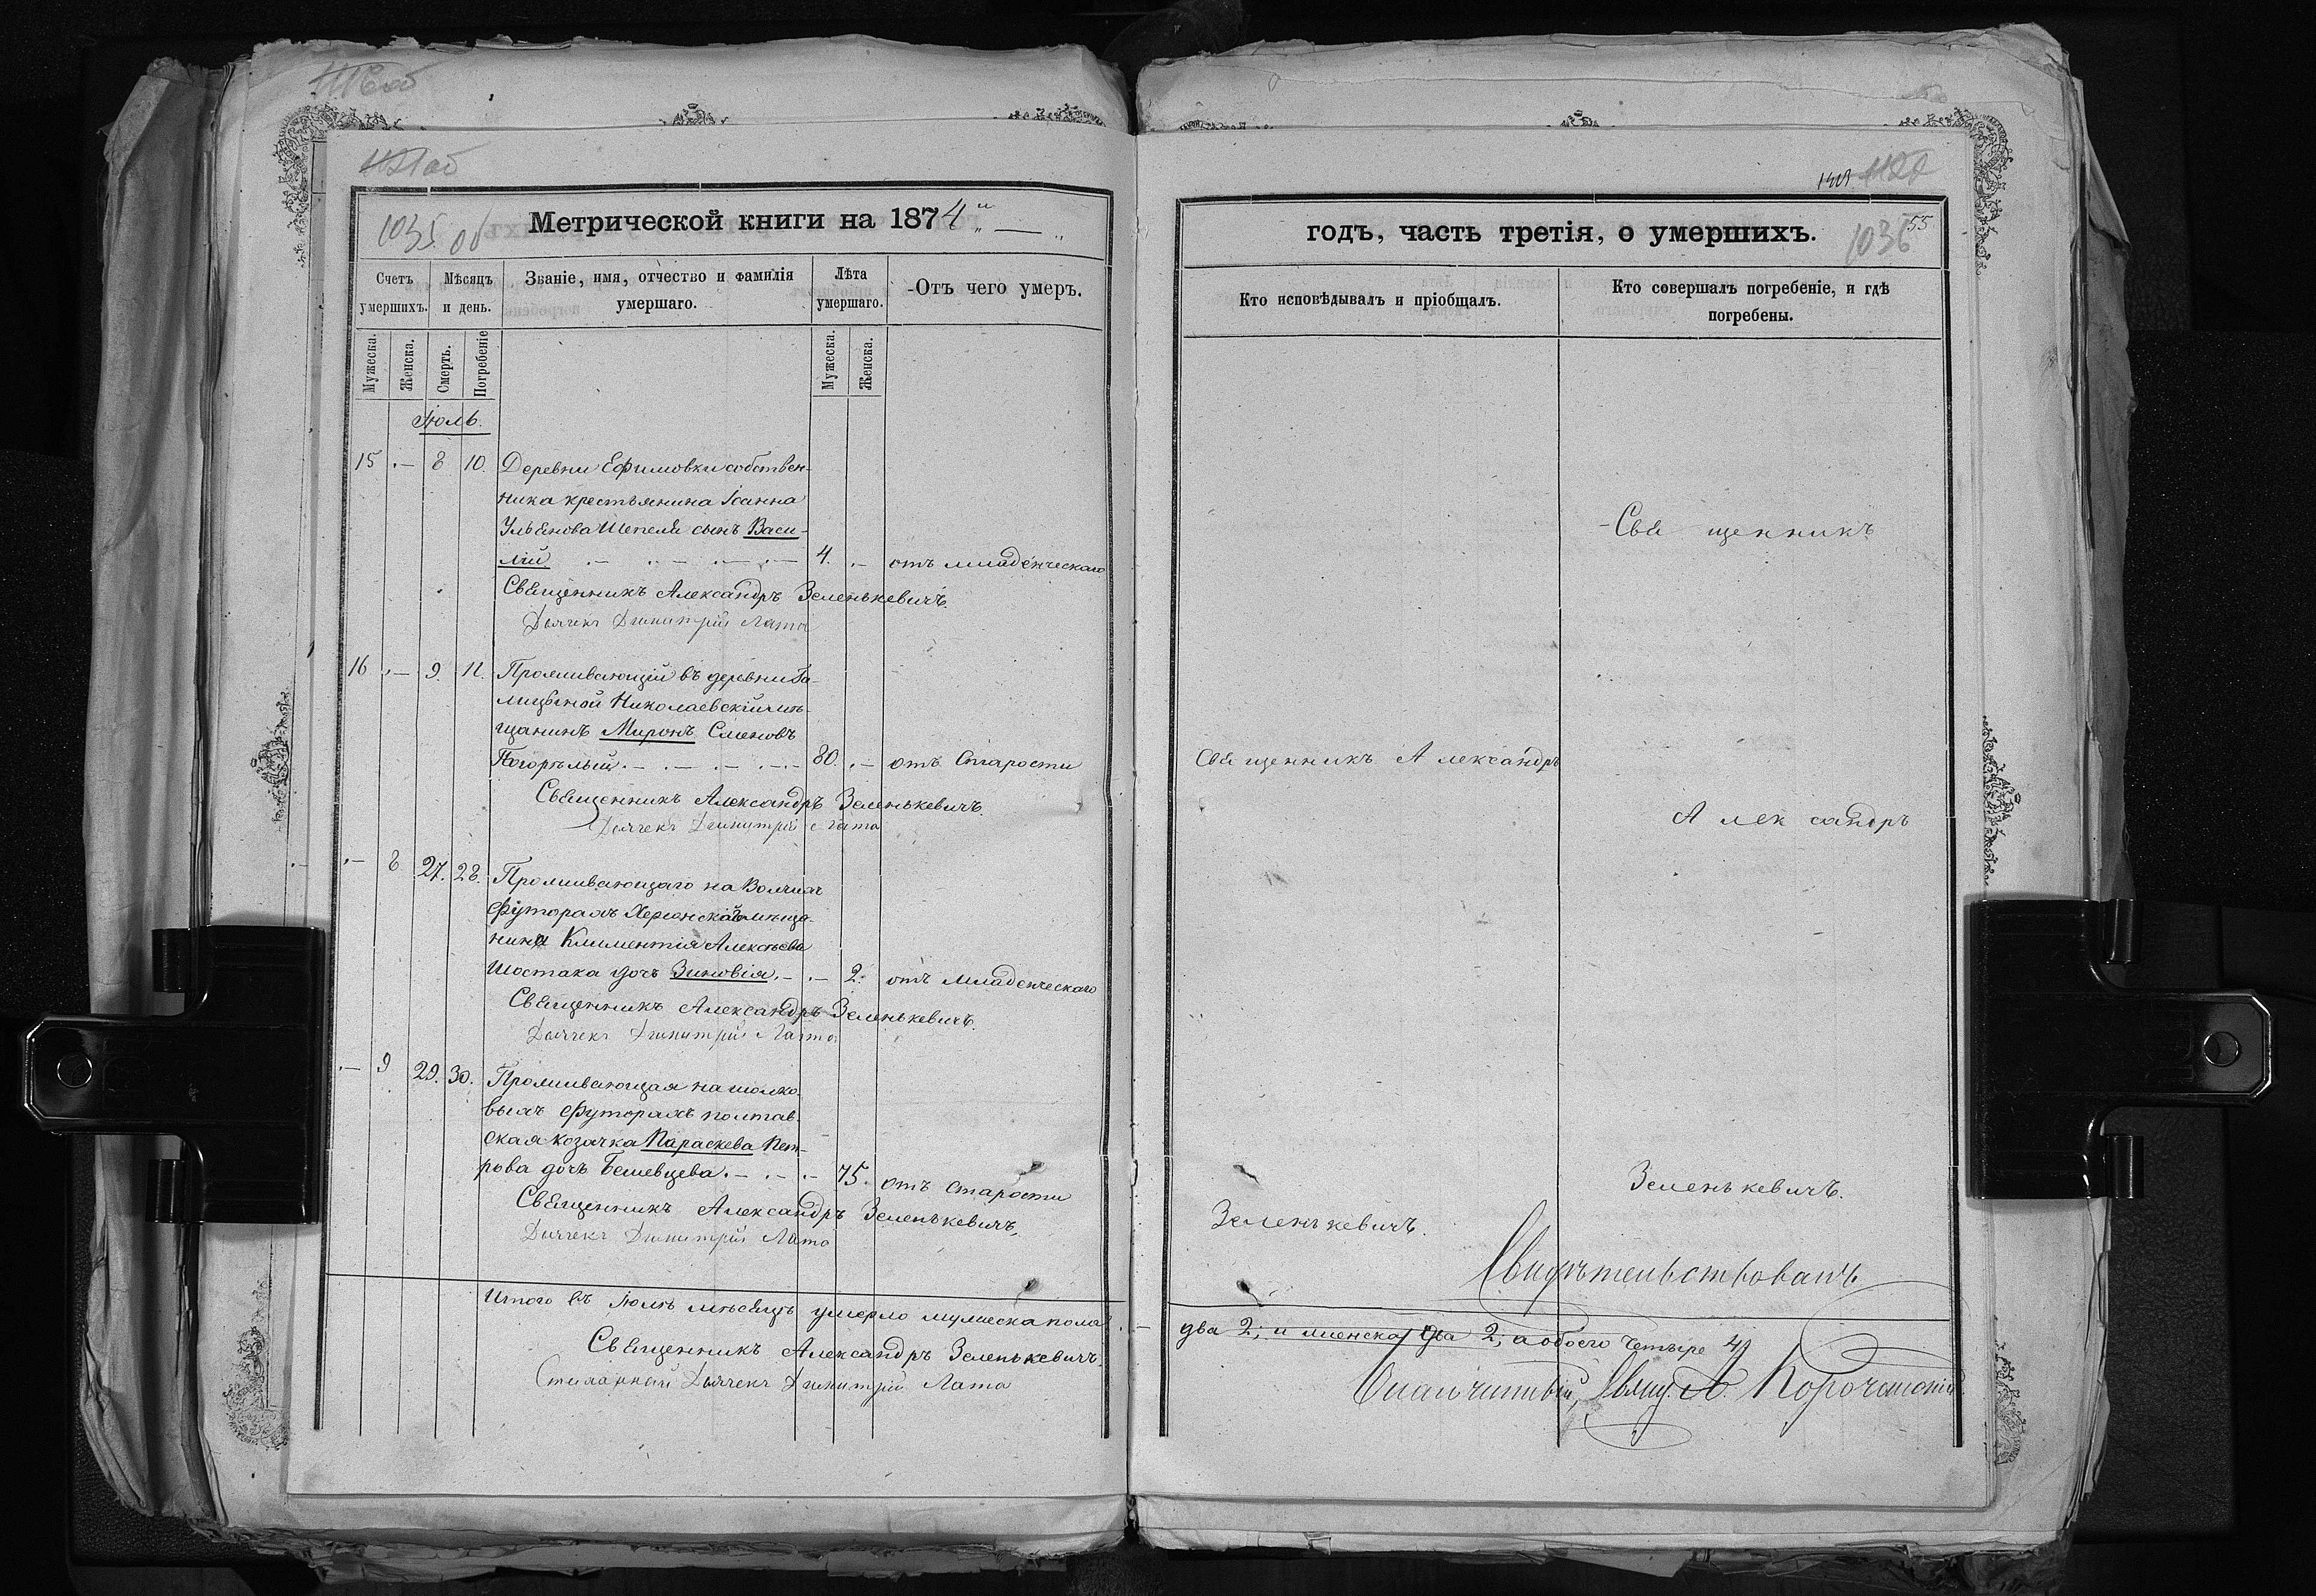 1035 об
Метрической книги на 1874
Счетъ умершихъ.
Мѣсяцъ и день.
Званіе, имя, отчество и фамилія умершаго.
Лѣта умершаго.
Отъ чего умеръ.
Мужеска. Женска. Смерть. Погребеніе Мужеска. Женска.
Іюль.
15 .— 8 10. Деревни Ефимовки собствен-
ника крестьянина Іоанна
Ульянова Шепеля сынъ Васи-
лій 4. .— отъ младенческаго
Священникъ Александръ Зеленькевичъ.
Дьячекъ Димитрій Лата
16 .— 9. 11. Проживающій въ деревни Га-
лицыной Николаевскій мѣ-
щанинъ Миронъ Сменовъ
Погорѣлый .— .— .— .— 80. .— отъ Старости
Священникъ Александръ Зеленькевичъ.
Дьячекъ Димитрій Лата
.— 8 27. 28. Проживающаго на Волчихъ
Футорахъ Херсонскаго мѣща-
нина Климентія Алексѣева
Шостака дочъ Зиновія .— .— 2. отъ младенческаго
Священникъ Александръ Зеленькевичъ.
Дьячекъ Димитрій Лата
.— 9 29. 30. Проживающая на шолко-
выхъ Футорахъ полтав-
ская козачка Параскева Пет-
рова дочъ Бешевцева .— .— .— 75. отъ старости
Священникъ Александръ Зеленькевичъ.
Дьячекъ Димитрій Лата
Итого въ Іюлѣ мѣсяцѣ умерло мужеска пола
Священникъ Александръ Зеленькевичъ.
Дьячекъ Димитрій Лата
55
годъ, часть третія, о умершихъ.
1036
Кто исповѣдывалъ и пріобщалъ.
Кто совершалъ погребеніе, и гдѣ погребены.
Священникъ
Священникъ Александръ
Александръ
Зеленькевичъ.
Зеленькевичъ.
Свидѣтельствовалъ
два 2; и женска два 2; а обоего четыре 4
Благочинный, Свящ. А.